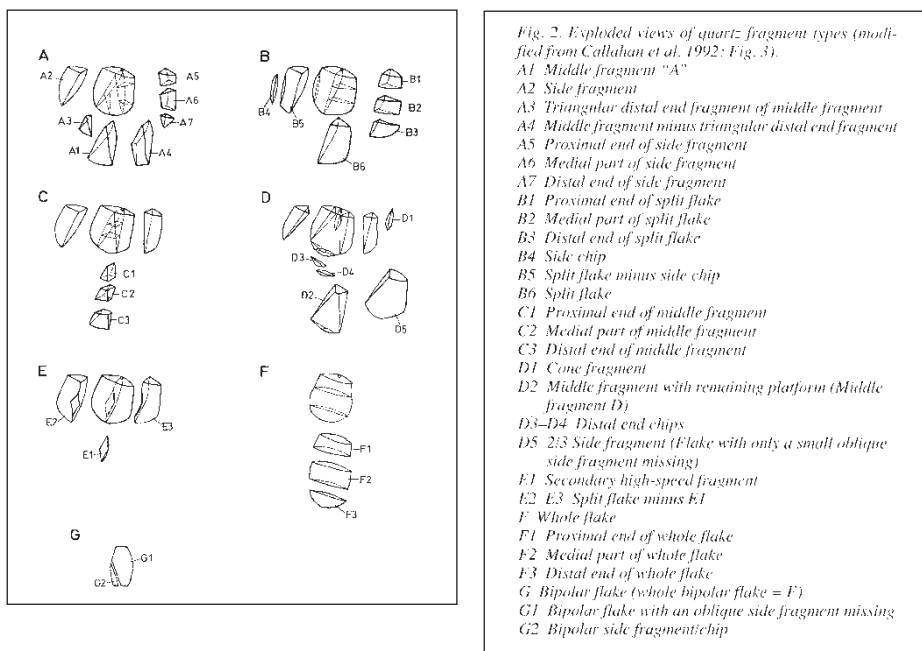 A
A2
A5
A6
A3
A7
A1
A4
B
B1
B4
B2
B5
B3
B6
C
C1
C2
C3
D
D1
D3
D4
D2
D5
E
E2
E3
E1
F
F1
F2
F3
G
G1
G2
Fig. 2. Exploded views of quartz fragment types (modi-
fied from Callahan et al. 1992: Fig. 3).
A1 Middle fragment "A"
A2 Side fragment
A3 Triangular distal end fragment of middle fragment
A4 Middle fragment minus triangular distal end fragment
A5 Proximal end of side fragment
A6 Medial part of side fragment
A7 Distal end of side fragment
B1 Proximal end of split flake
B2 Medial part of split flake
B3 Distal end of split flake
B4 Side chip
B5 Split flake minus side chip
B6 Split flake
C1 Proximal end of middle fragment
C2 Medial part of middle fragment
C3 Distal end of middle fragment
D1 Cone fragment
D2 Middle fragment with remaining platform (Middle
fragment D)
D3–D4 Distal end chips
D5 2/3 Side fragment (Flake with only a small oblique
side fragment missing)
E1 Secondary high-speed fragment
E2 E3 Split flake minus E1
F Whole flake
F1 Proximal end of whole flake
F2 Medial part of whole flake
F3 Distal end of whole flake
G Bipolar flake (whole bipolar flake = F)
G1 Bipolar flake with an oblique side fragment missing
G2 Bipolar side fragment/chip